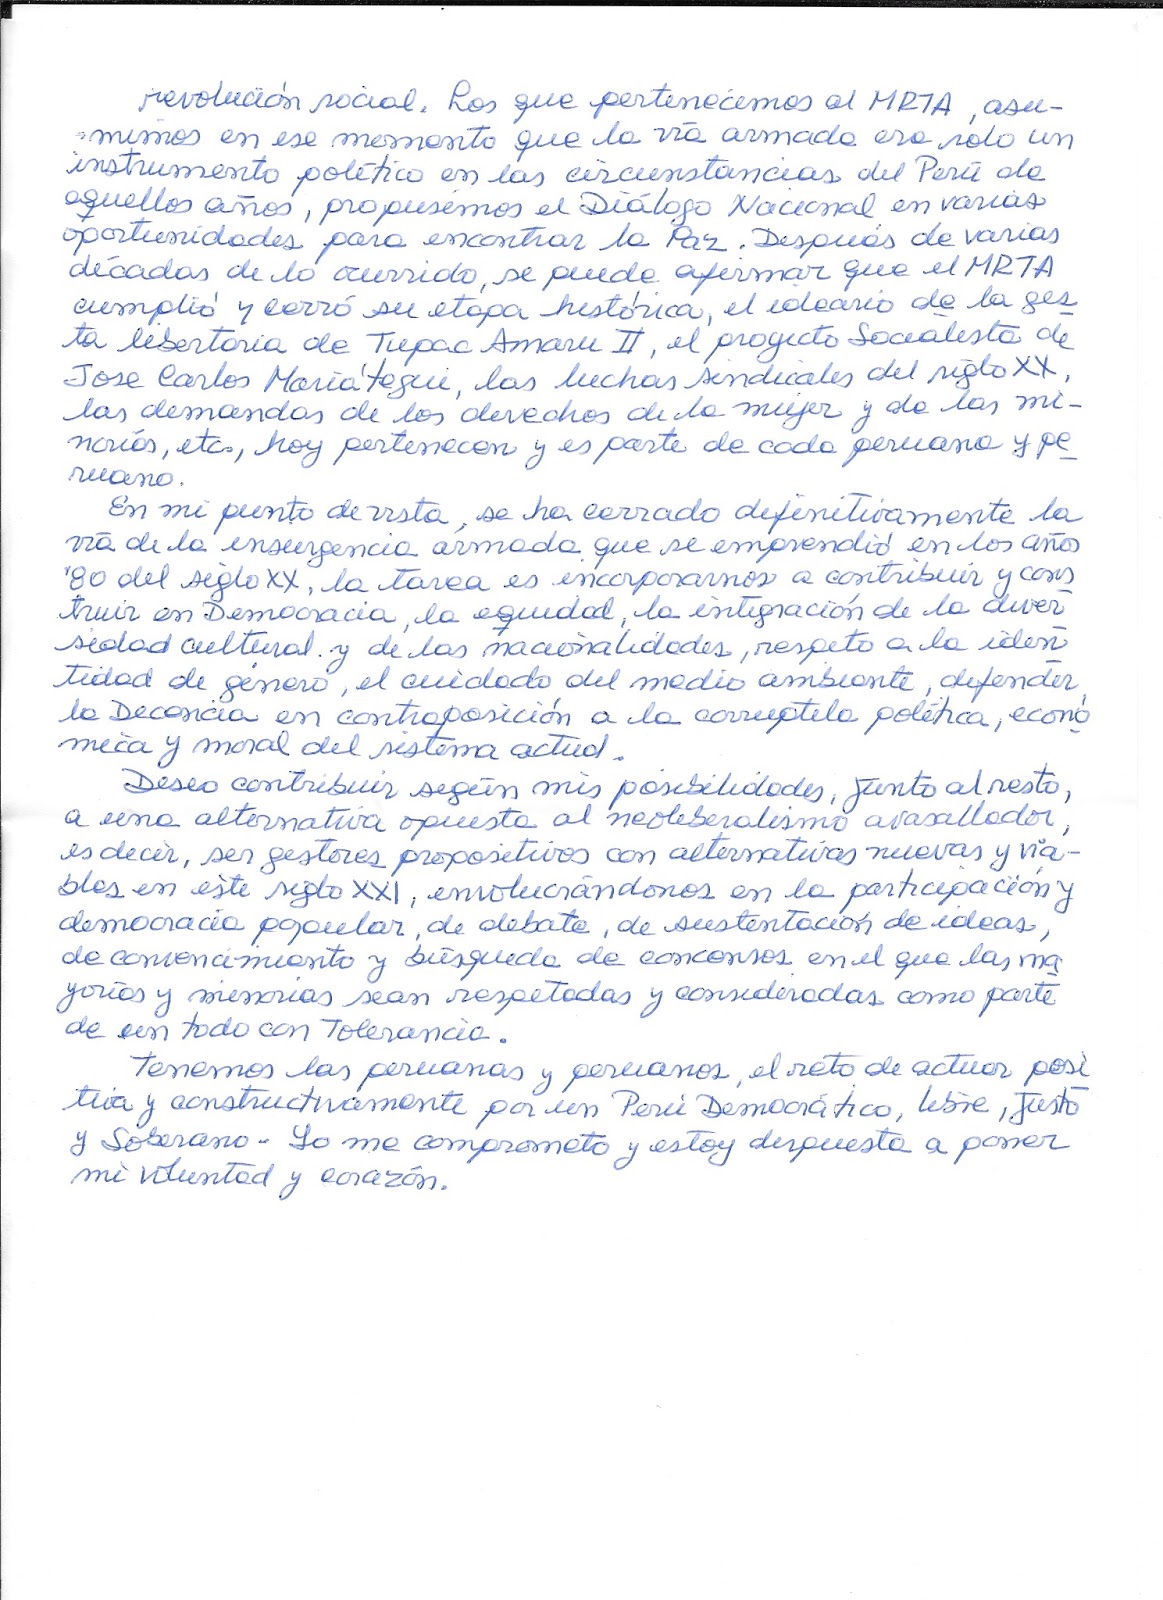 revolución social. Los que pertenecemos al MRTA, asu-
mimos en ese momento que la vía armada era solo un
instrumento político en las circunstancias del Perú de
aquellos años, propusimos el Diálogo Nacional en varias
oportunidades para encontrar la Paz. Después de varias
décadas de lo ocurrido, se puede afirmar que el MRTA
cumplió y cerró su etapa histórica, el ideario de la ges
ta libertaria de Tupac Amaru II, el proyecto Socialista de
Jose Carlos Mariátegui, las luchas sindicales del siglo XX,
las demandas de los derechos de la mujer y de las mi-
norías, etc., hoy pertenecen y es parte de cada peruana y pe
ruano.
En mi punto de vista, se ha cerrado definitivamente la
vía de la insurgencia armada que se emprendió en los años
'80 del siglo XX, la tarea es incorporarnos a contribuir y cons
truir en Democracia, la equidad, la integración de la diver
sidad cultural y de las nacionalidades, respeto a la iden
tidad de género, el cuidado del medio ambiente, defender
la Decencia en contraposición a la corruptela política, econó
mica y moral del sistema actual.
Deseo contribuir según mis posibilidades, junto al resto,
a una alternativa opuesta al neoliberalismo avasallador,
es decir, ser gestores propositivos con alternativas nuevas y via-
bles en este siglo XXI, involucrándonos en la participación y
democracia popular, de debate, de sustentación de ideas,
de convencimiento y búsqueda de concensos en el que las ma
yorías y minorías sean respetadas y consideradas como parte
de un todo con Tolerancia.
Tenemos las peruanas y peruanos, el reto de actuar posi
tiva y constructivamente por un Perú Democrático, libre, Justo
y Soberano - Yo me comprometo y estoy dispuesta a poner
mi voluntad y corazón.